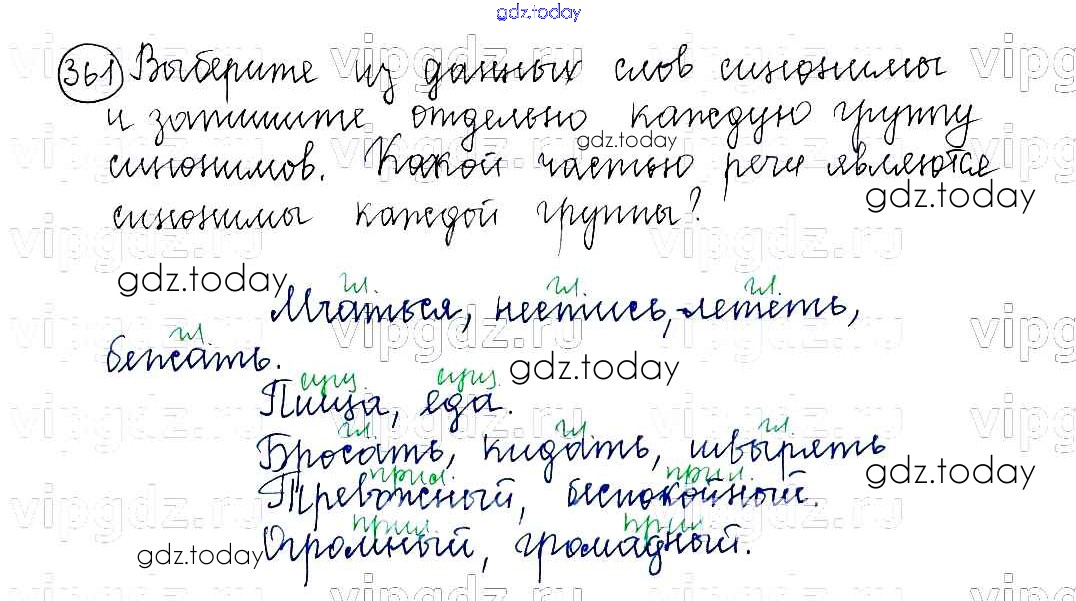 gdz.today
361 Выберите из данных слов синонимы
и запишите отдельно каждую группу
gdz.today
синонимов. Какой частью речи являются
gdz.today
синонимы каждой группы?
gdz.today
гл. гл. гл.
Мчаться, нестись, лететь,
гл.
бежать.
gdz.today
сущ. сущ.
Пища, еда.
гл. гл гл.
Бросать, кидать, швырять
gdz.today
прил. прил
Тревожный, беспокойный.
прил. прил
Огромный, громадный.
gdz.today